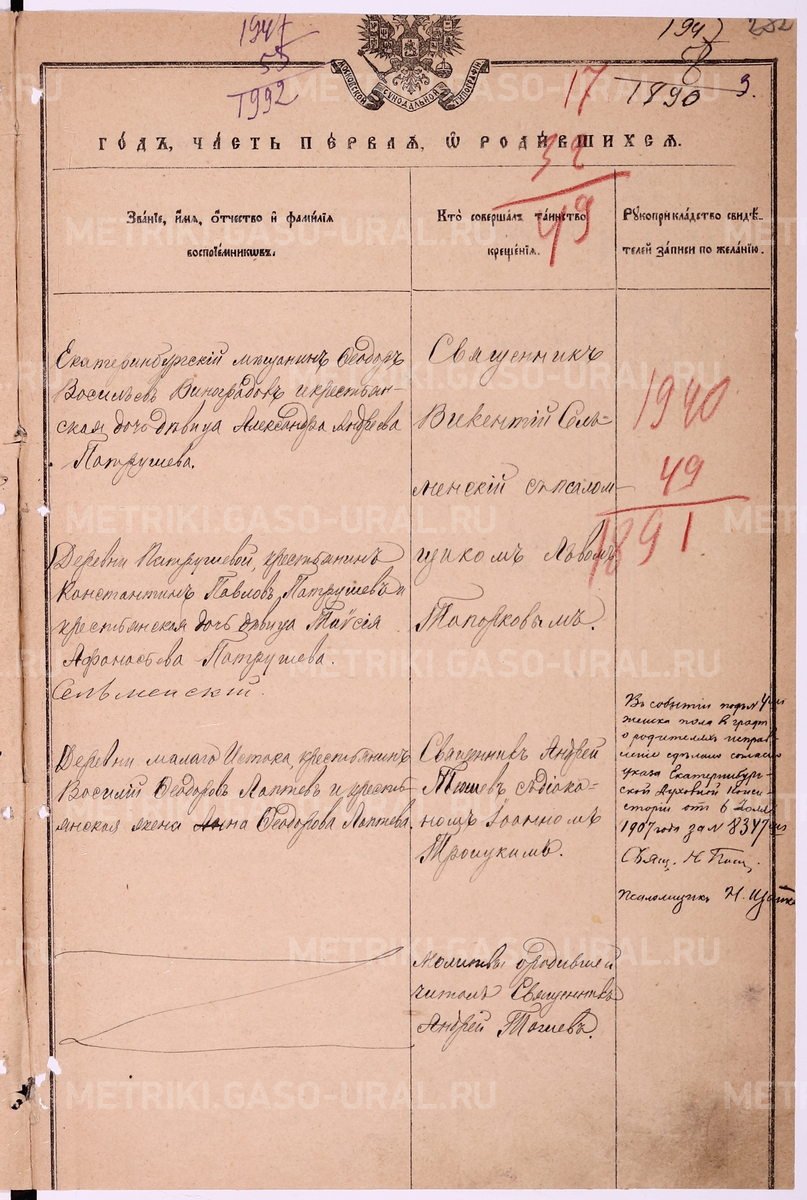 1947
55
1992
1947
8
1890
282
3.
17
32
49
МОСКОВСКОЙ СѴНОДАЛЬНОЙ ТИПОГРАФІИ
ГО́ДЪ, ЧА́СТЬ ПЕ́РВАЯ, Ѽ РОДИ́ВШИХСЯ.
Зва́нїе, и҆́мя, ѻ҆́тчество и҆ фамилїя
воспрїе́мникѡвъ.
Кто̀ соверша́лъ та́инство
креще́нїя.
Рꙋкоприкла́дство свидѣ́-
телей за́писи по жела́нїю.
Екатеринбургскій мѣщанинъ Ѳеодоръ
Васильевъ Виноградовъ и крестьян-
ская дочь дѣвица Александра Андреева
Патрушева.
Священникъ
Викентій Сель-
менскій съ псалом-
щикомъ Львомъ
Топорковымъ.
1940
49
1891
Деревни Патрушевой, крестьянинъ
Константинъ Павловъ Патрушевъ и
крестьянская дочь дѣвица Таисія
Афанасьева Патрушева.
Сельменскій.
Деревни Малаго Истока, крестьянинъ
Василій Ѳеодоровъ Лаптевъ и кресть-
янская жена Анна Ѳеодорова Лаптева.
Священникъ Андрей
съ діако-
номъ Іоанномъ
Троицкимъ.
Въ событіи подъ № 4
женска пола в графѣ
о родителяхъ исправ-
леніе сдѣлано согласно
указа Екатеринбург-
ской Духовной Конси-
сторіи отъ 6 Іюля
1907 года за № 8347
Свящ. Н.
Псаломщикъ Н.
Молитвы о родившей
читалъ Священникъ
Андрей
METRIKI.GASO-URAL.RU